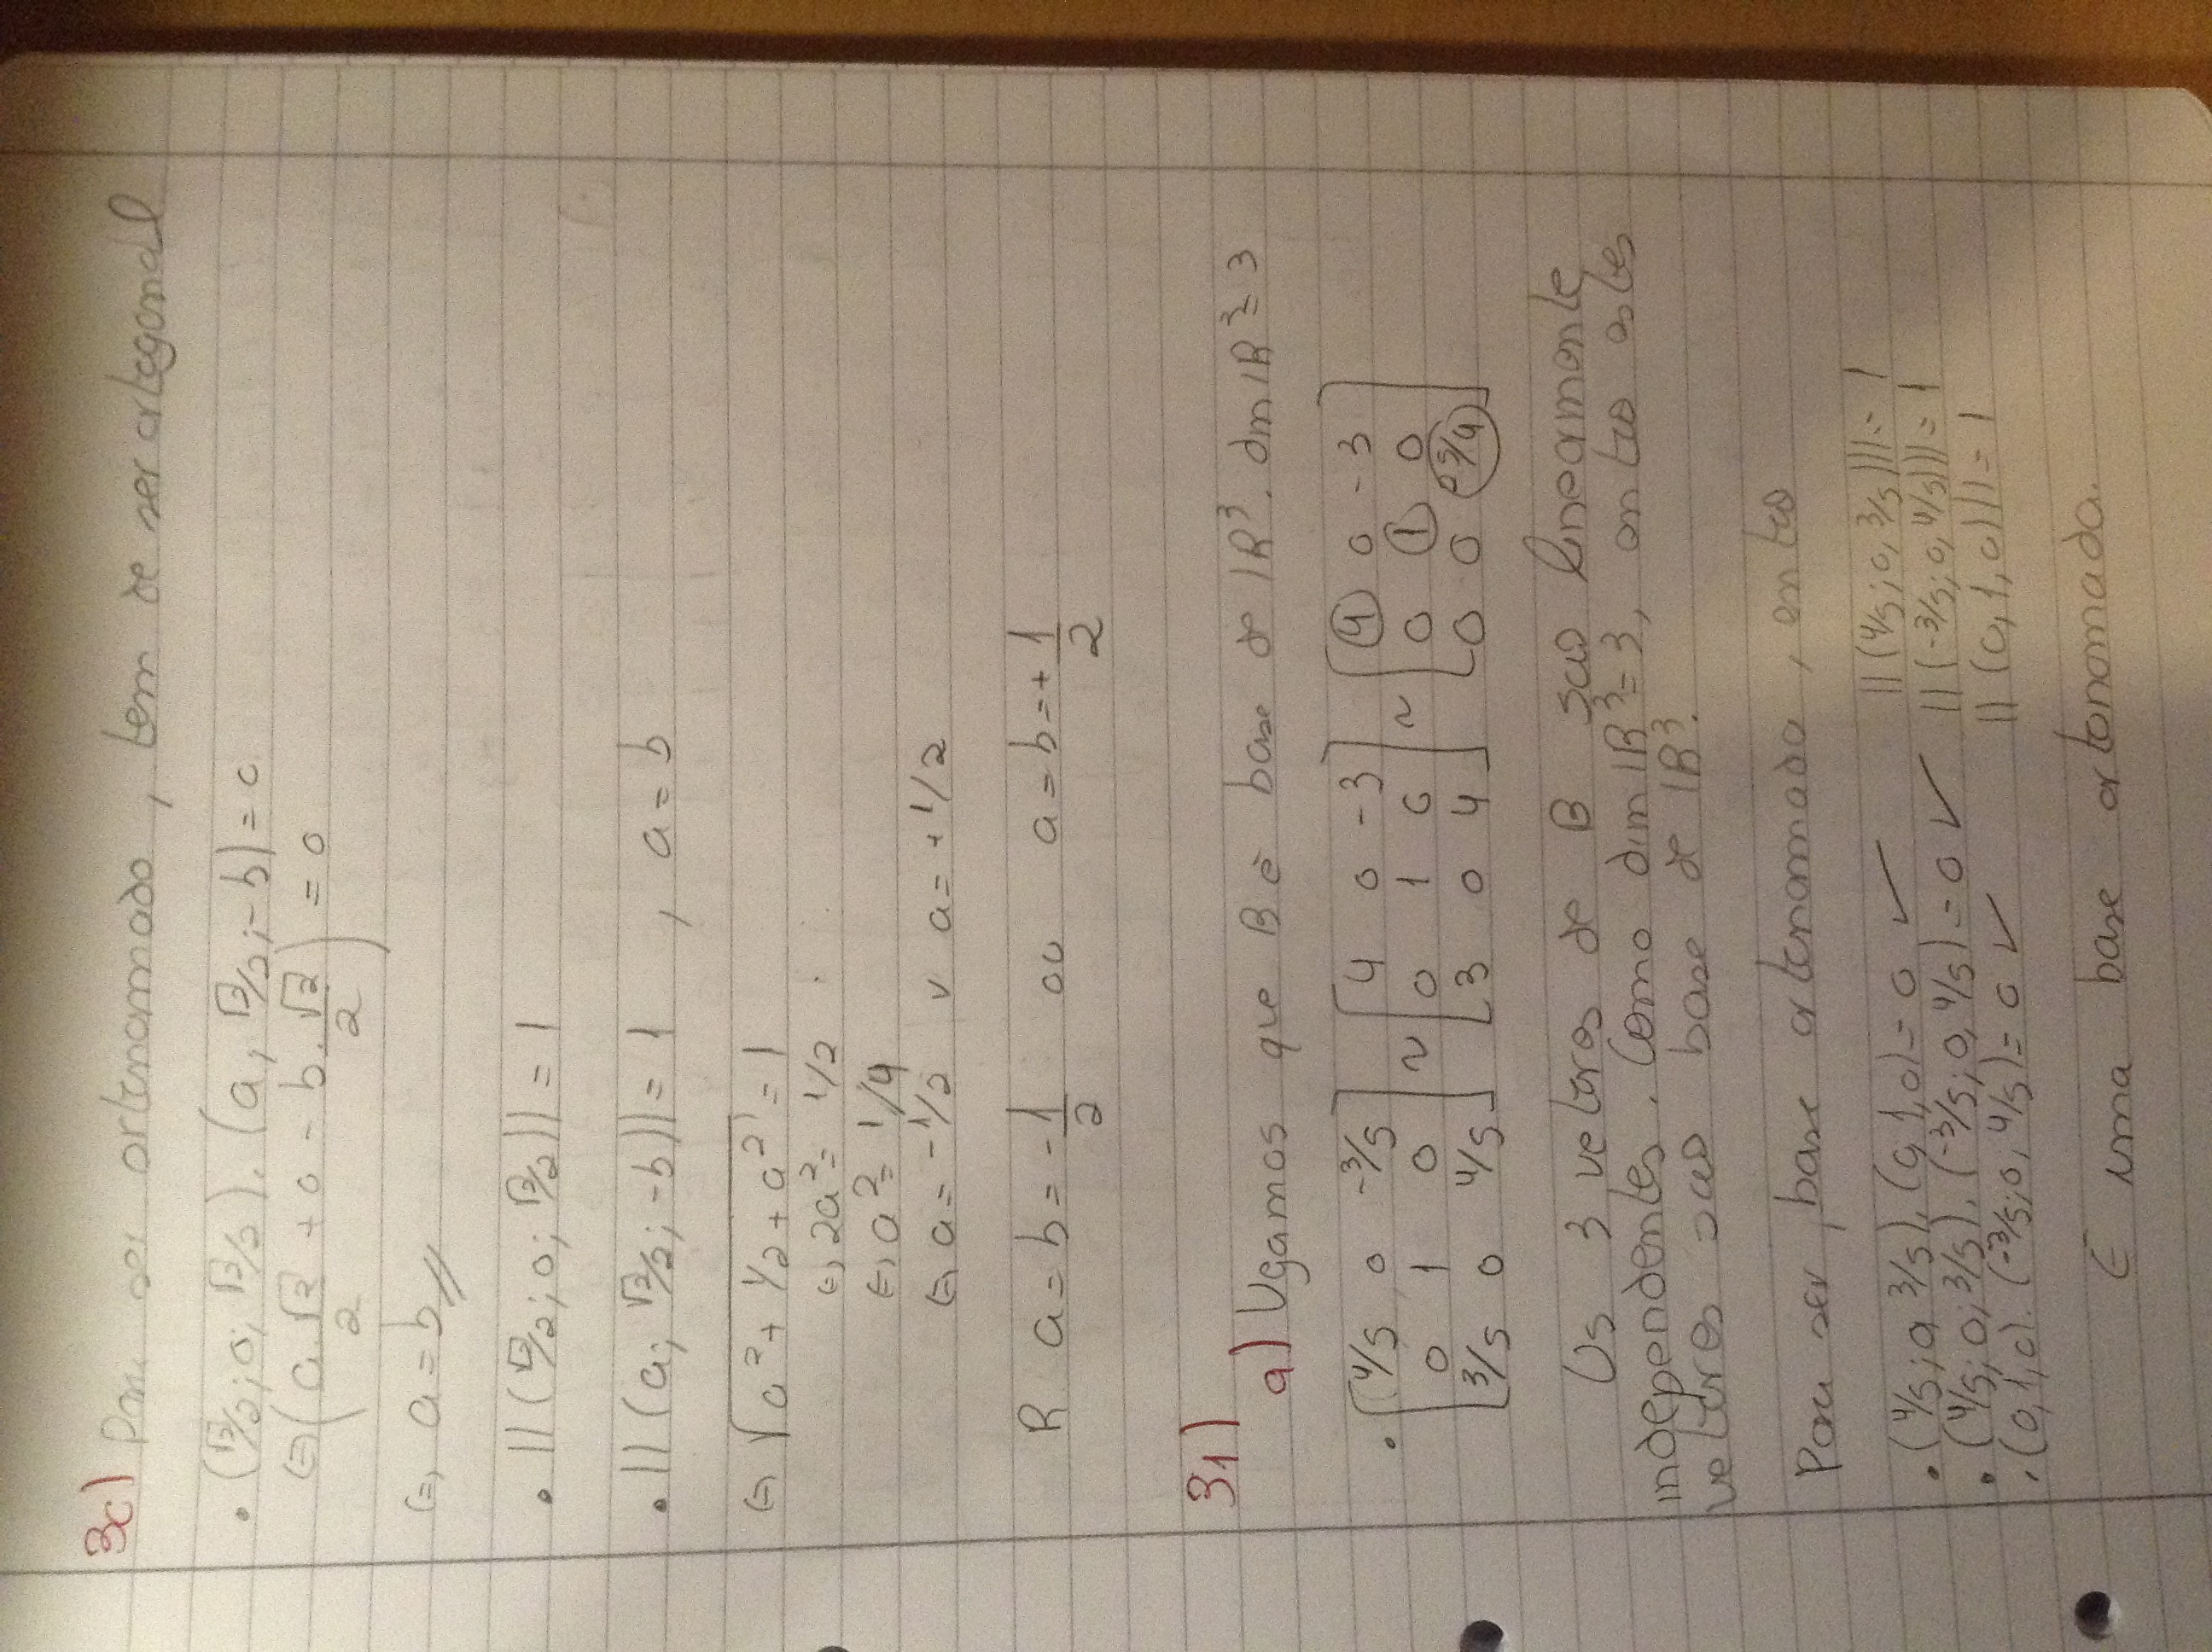 3c) Para ser ortonormado, tem de ser ortogonal
• (√2/2; 0; √2/2) . (a; √2/2; -b) = 0
⇔ (a.√2/2 + 0 - b.√2/2) = 0
⇔ a = b //
• ||(√2/2; 0; √2/2)|| = 1
• ||(a; √2/2; -b)|| = 1 , a = b
⇔ √(a² + 1/2 + a²) = 1
⇔ 2a² = 1/2
⇔ a² = 1/4
⇔ a = -1/2 v a = +1/2
R. a = b = -1/2 ou a = b = +1/2
31)
a) Vejamos que B é base de IR³. dim IR³ = 3
• [4/5 0 -3/5; 0 1 0; 3/5 0 4/5] ~ [4 0 -3; 0 1 0; 3 0 4] ~ [4 0 -3; 0 1 0; 0 0 25/4]
Os 3 vetores de B são linearmente
independentes. Como dim IR³ = 3, então estes
vetores são base de IR³.
Para ser, base ortonormada, então
• (4/5; 0; 3/5) . (0, 1, 0) = 0 ✓ ||(4/5; 0, 3/5)|| = 1
• (4/5; 0; 3/5) . (-3/5; 0, 4/5) = 0 ✓ ||(-3/5; 0, 4/5)|| = 1
• (0, 1, 0) . (-3/5; 0; 4/5) = 0 ✓ ||(0, 1, 0)|| = 1
É uma base ortonomada.